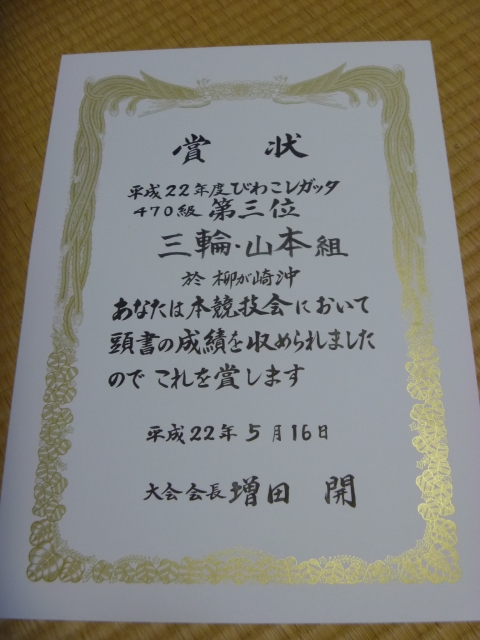 賞状
平成22年度びわこレガッタ
470級 第三位
三輪・山本組
於 柳が崎沖
あなたは本競技会において
頭書の成績を収められました
ので これを賞します
平成22年5月16日
大会会長 増田 開